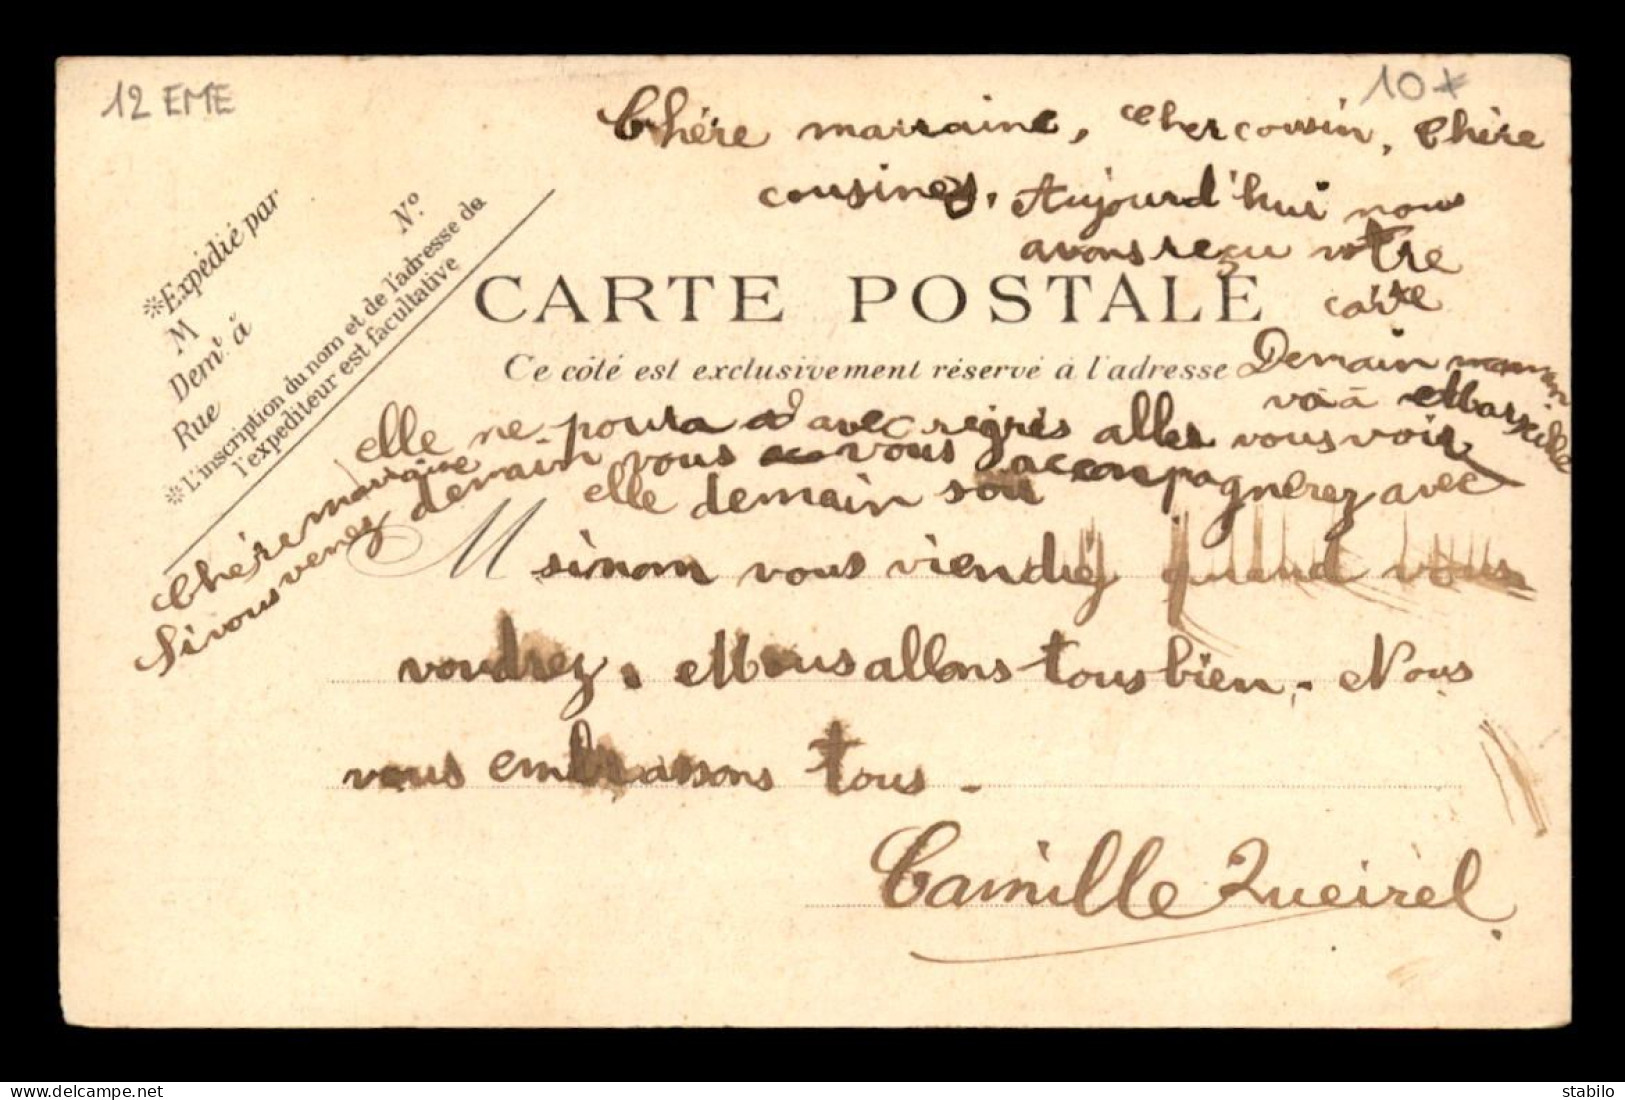 12 EME
10
Chére marraine, cher cousin, Chère
cousines, Aujourd'hui nous
avons reçu votre
carte
※Expédié par
M
Demt à
Rue
N°.
※L'inscription du nom et de l'adresse de
l'expéditeur est facultative
CARTE POSTALE
Ce côté est exclusivement réservé à l'adresse
Demain maman
va à Marseille
elle ne poura avec régrès aller vous voir
Chère marraine
Si vous venez demain vous vous accompagnerez avec
elle demain soir
M
sinom vous viendrez quand vous
voudrez. Nous allons tous bien. Nous
vous embrassons tous.
Camille Queirel.
stabilo